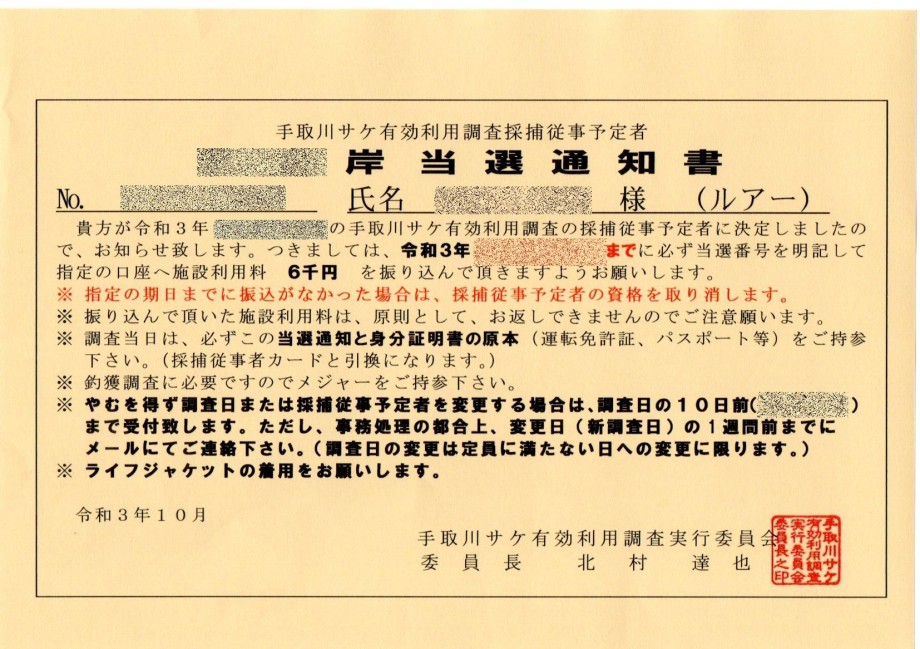 手取川サケ有効利用調査採捕従事予定者
岸当選通知書
No. 氏名 様 （ルアー）
貴方が令和３年 の手取川サケ有効利用調査の採捕従事予定者に決定しましたの
で、お知らせ致します。つきましては、令和3年 までに必ず当選番号を明記して
指定の口座へ施設利用料 6千円 を振り込んで頂きますようお願いします。
※ 指定の期日までに振込がなかった場合は、採捕従事予定者の資格を取り消します。
※ 振り込んで頂いた施設利用料は、原則として、お返しできませんのでご注意願います。
※ 調査当日は、必ずこの当選通知と身分証明書の原本（運転免許証、パスポート等）をご持参
下さい。（採捕従事者カードと引換になります。）
※ 釣獲調査に必要ですのでメジャーをご持参下さい。
※ やむを得ず調査日または採捕従事予定者を変更する場合は、調査日の１０日前( )
まで受付致します。ただし、事務処理の都合上、変更日（新調査日）の１週間前までに
メールにてご連絡下さい。（調査日の変更は定員に満たない日への変更に限ります。）
※ ライフジャケットの着用をお願いします。
令和３年１０月
手取川サケ有効利用調査実行委員会
委員長 北村 達也
手取川サケ
有効利用調査
実行委員会
委員長之印